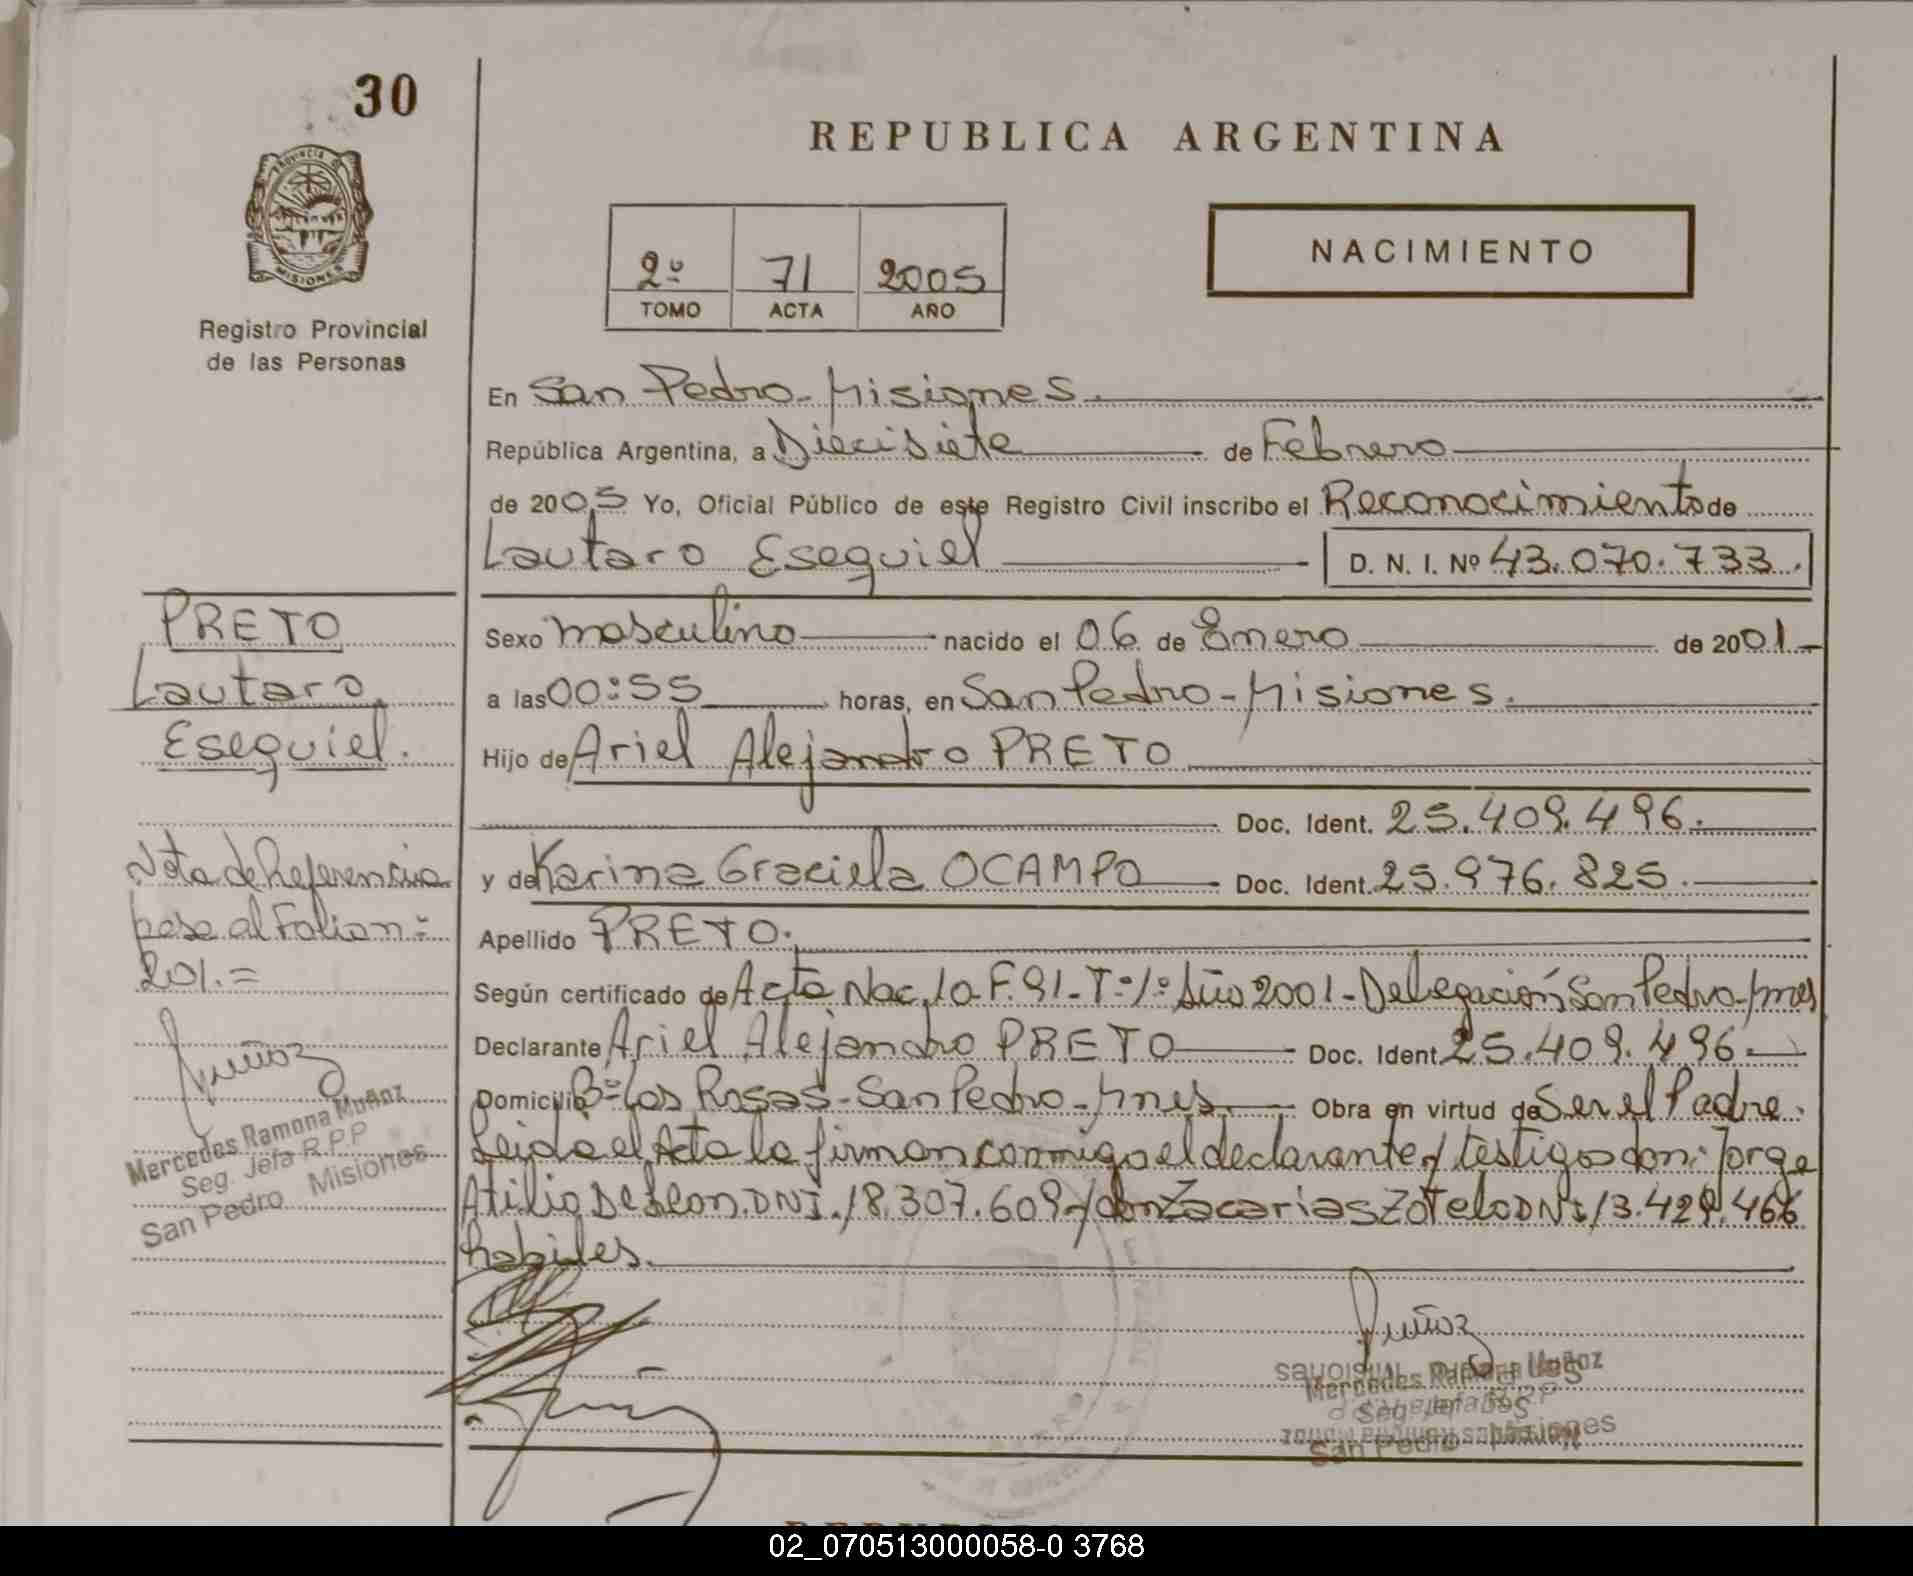 30
REPUBLICA ARGENTINA
PROVINCIA DE
MISIONES
Registro Provincial
de las Personas
2º 71 2005
TOMO ACTA AÑO
NACIMIENTO
En San Pedro - Misiones.
República Argentina, a Diecisiete de Febrero
de 2005 Yo, Oficial Público de este Registro Civil inscribo el Reconocimiento de
Lautaro Esequiel D. N. I. Nº 43.070.733.
PRETO
Lautaro
Esequiel.
Sexo masculino nacido el 06 de Enero de 2001.-
a las 00:55 horas, en San Pedro - Misiones.
Hijo de Ariel Alejandro PRETO
Doc. Ident. 25.409.496.
y de Karina Graciela OCAMPO Doc. Ident. 25.976.825.
Apellido PRETO.
Según certificado de Acta Nac. 10. F. 91 - T: 1º Año 2001 - Delegación San Pedro - Mnes
Declarante Ariel Alejandro PRETO Doc. Ident. 25.409.496.
Domicilio Bº Las Rosas - San Pedro - Mnes. Obra en virtud de Ser el Padre.
Leida el Acta la firman conmigo el declarante y testigos don: Jorge
Atilio De Leon. DNI. 18.307.609 y don Zacarias Zotelo DNI 13.429.466
habiles.
Nota de Referencia
pasa al Folio n:
201.=
Muñoz
Mercedes Ramona Muñoz
Seg. Jefa R.P.P
San Pedro Misiones
Muñoz
Mercedes Ramona Muñoz
Seg. Jefa R.P.P
San Pedro - Misiones
02_070513000058-0 3768